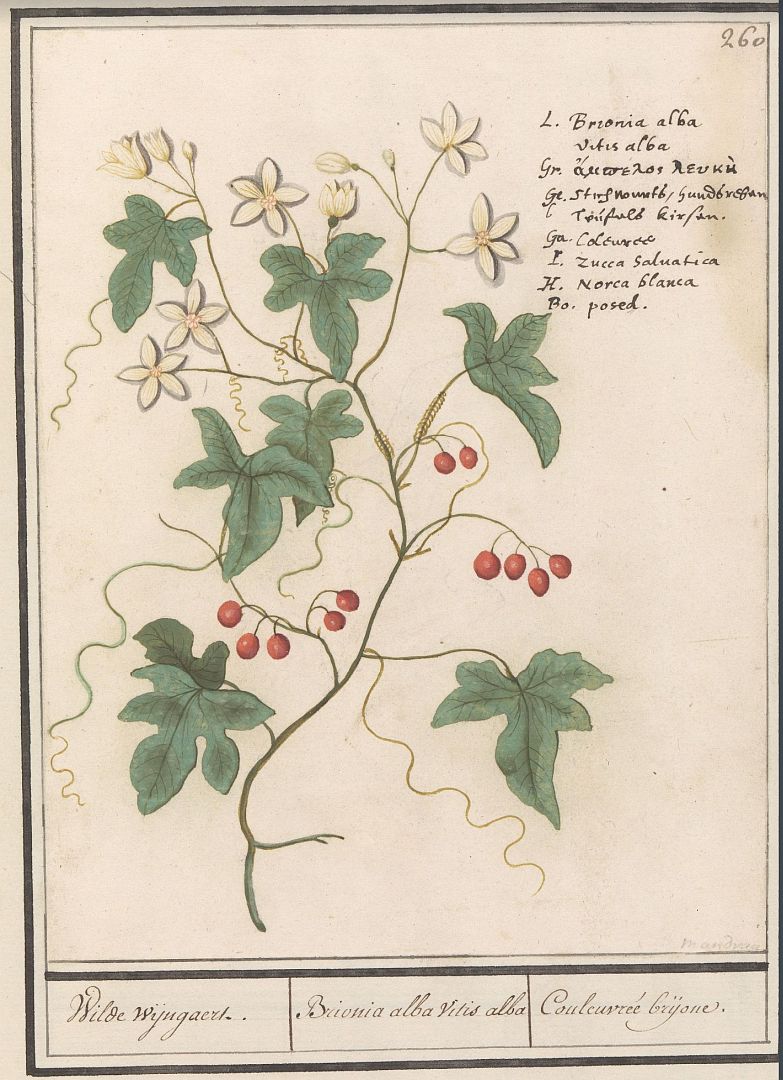 260
L. Brionia alba
Vitis alba
Gr. ἄμπελος λευκὴ
Ge. Stichwurtz, hundsreben
Teüfels kirsen.
Ga. Coleuvree
I. Zucca Salvatica
H. Norca blanca
Bo. posed.
Wilde Wijngaert.
Brionia alba Vitis alba
Couleuvreé brijone.